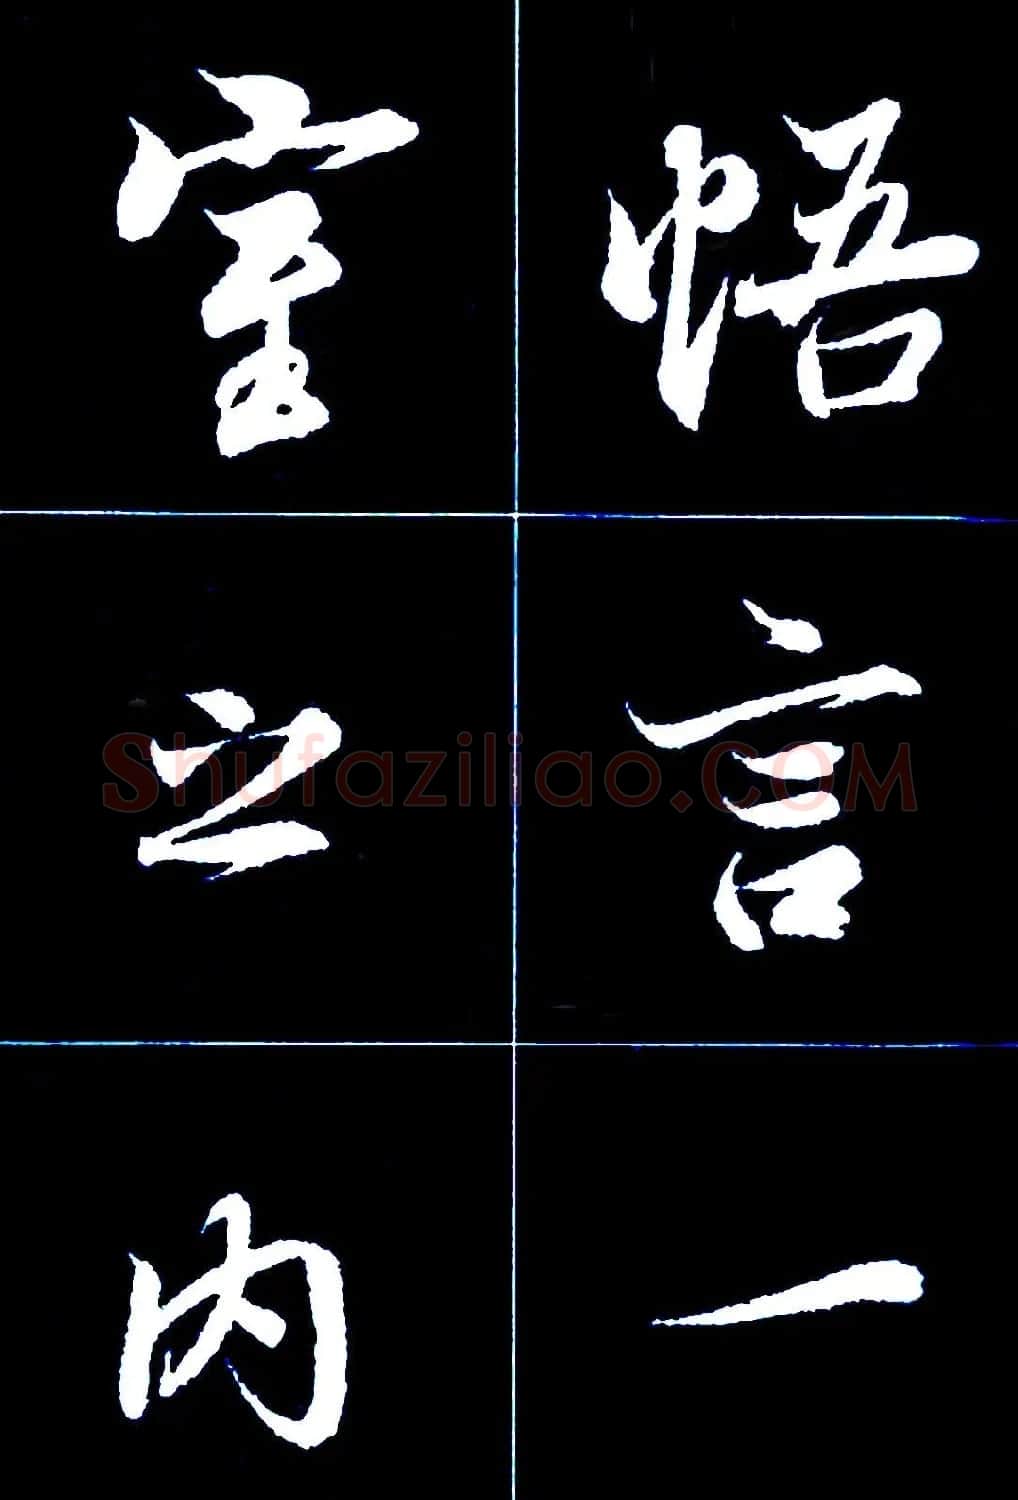 悟言一
室之内
Shufaziliao.COM